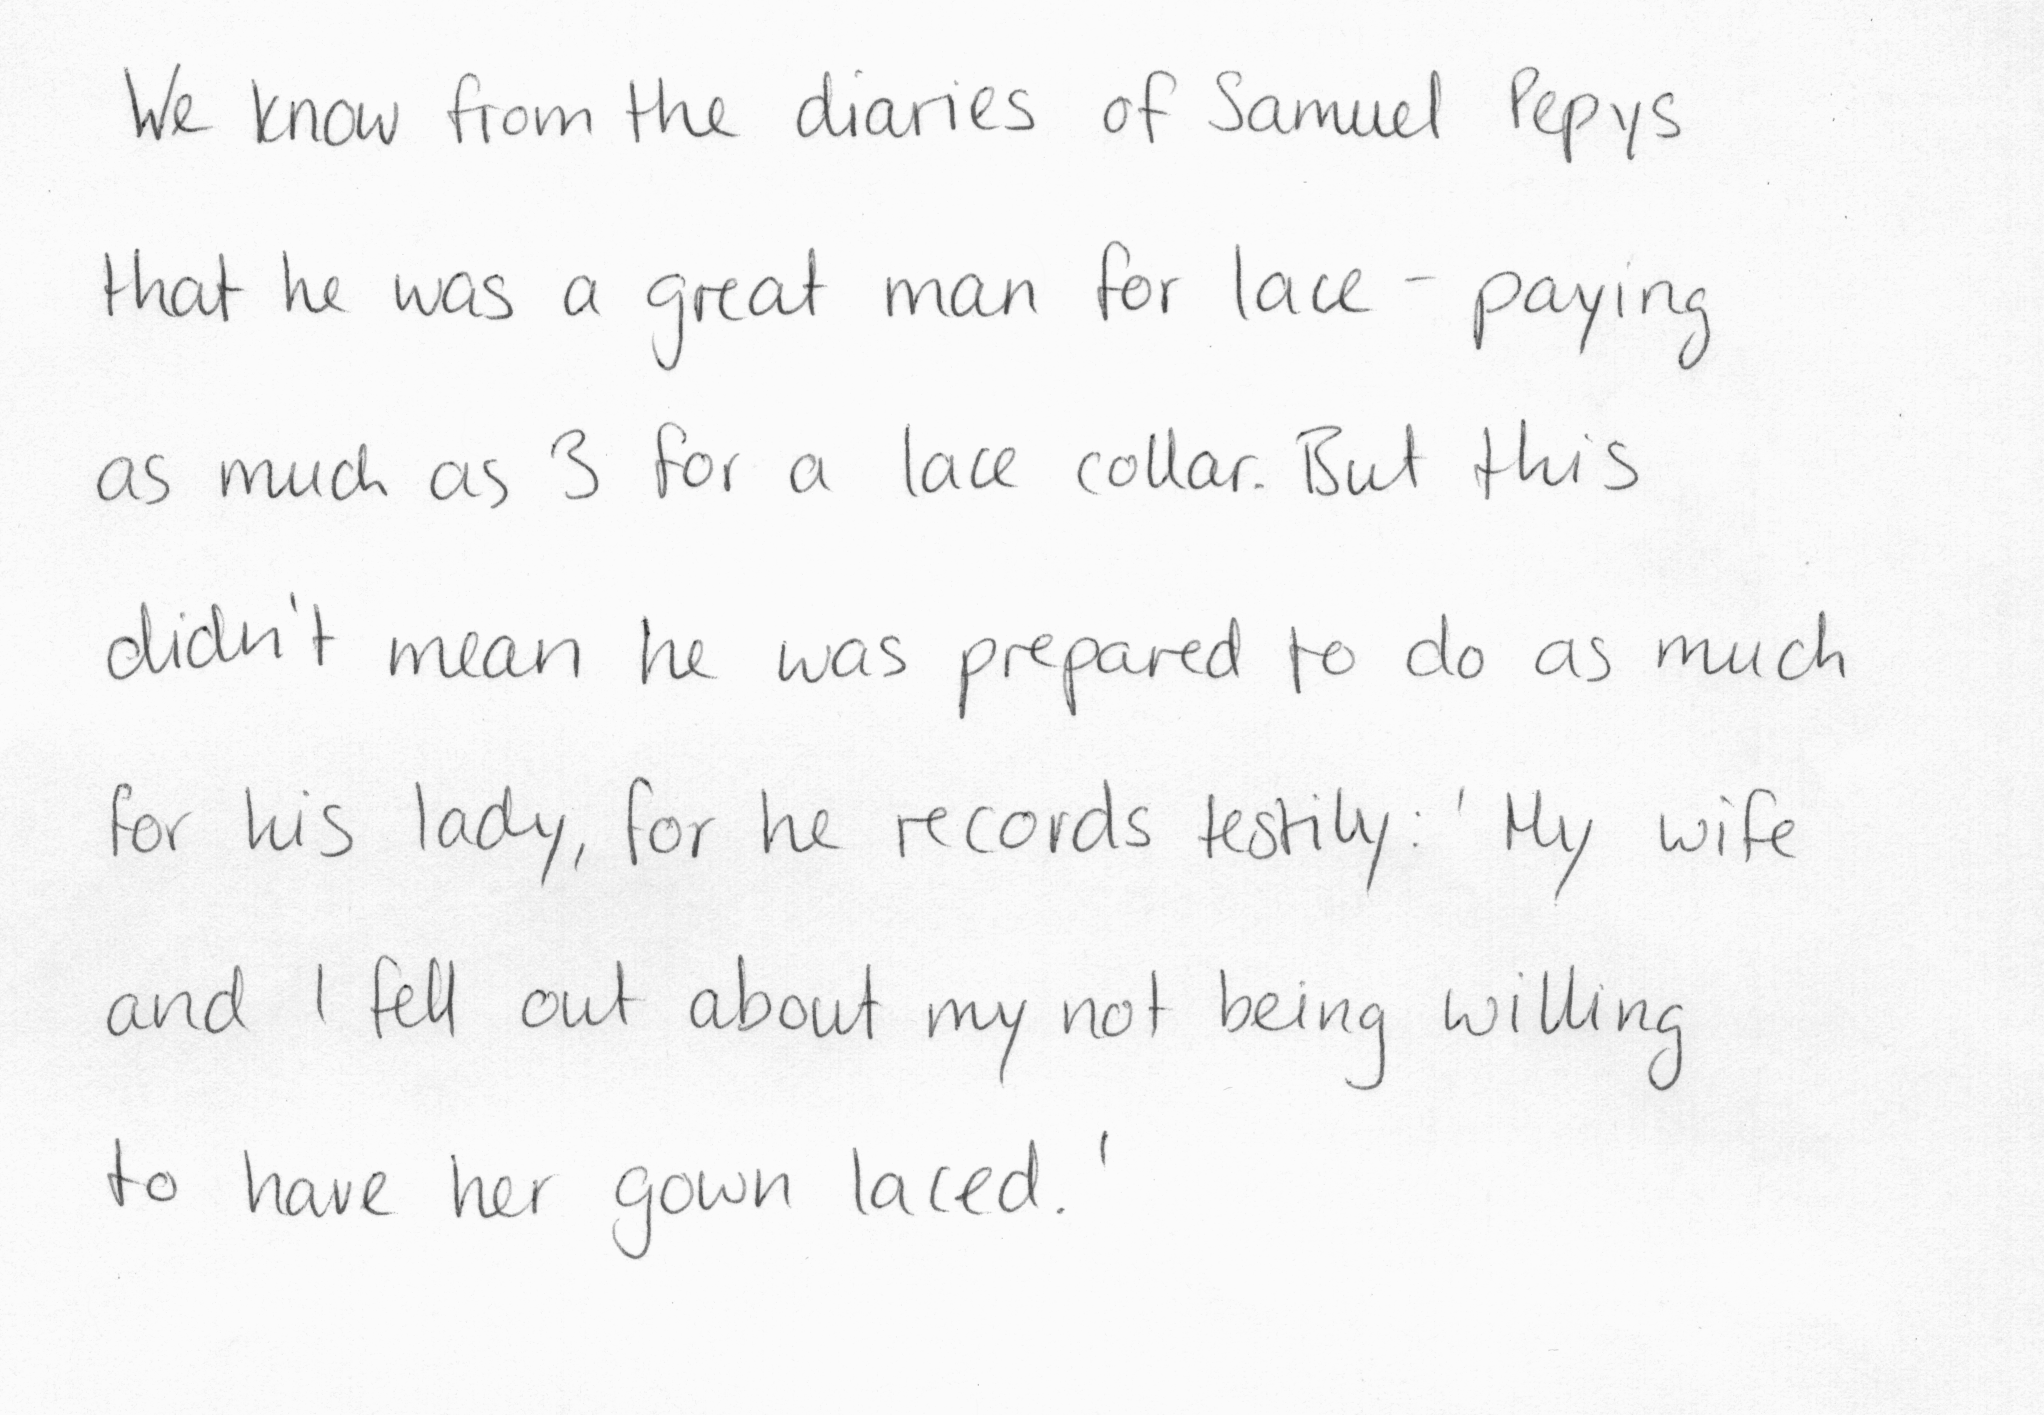 We know from the diaries of Samuel Pepys
that he was a great man for lace - paying
as much as 3 for a lace collar. But this
didn't mean he was prepared to do as much
for his lady, for he records testily: 'My wife
and I fell out about my not being willing
to have her gown laced.'